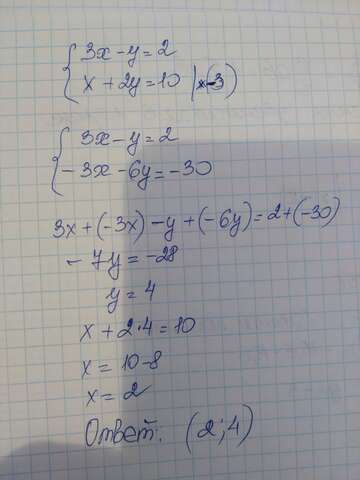 3x - y = 2
x + 2y = 10 | ×(-3)
3x - y = 2
-3x - 6y = -30
3x + (-3x) - y + (-6y) = 2 + (-30)
-7y = -28
y = 4
x + 2·4 = 10
x = 10-8
x = 2
Ответ: (2;4)